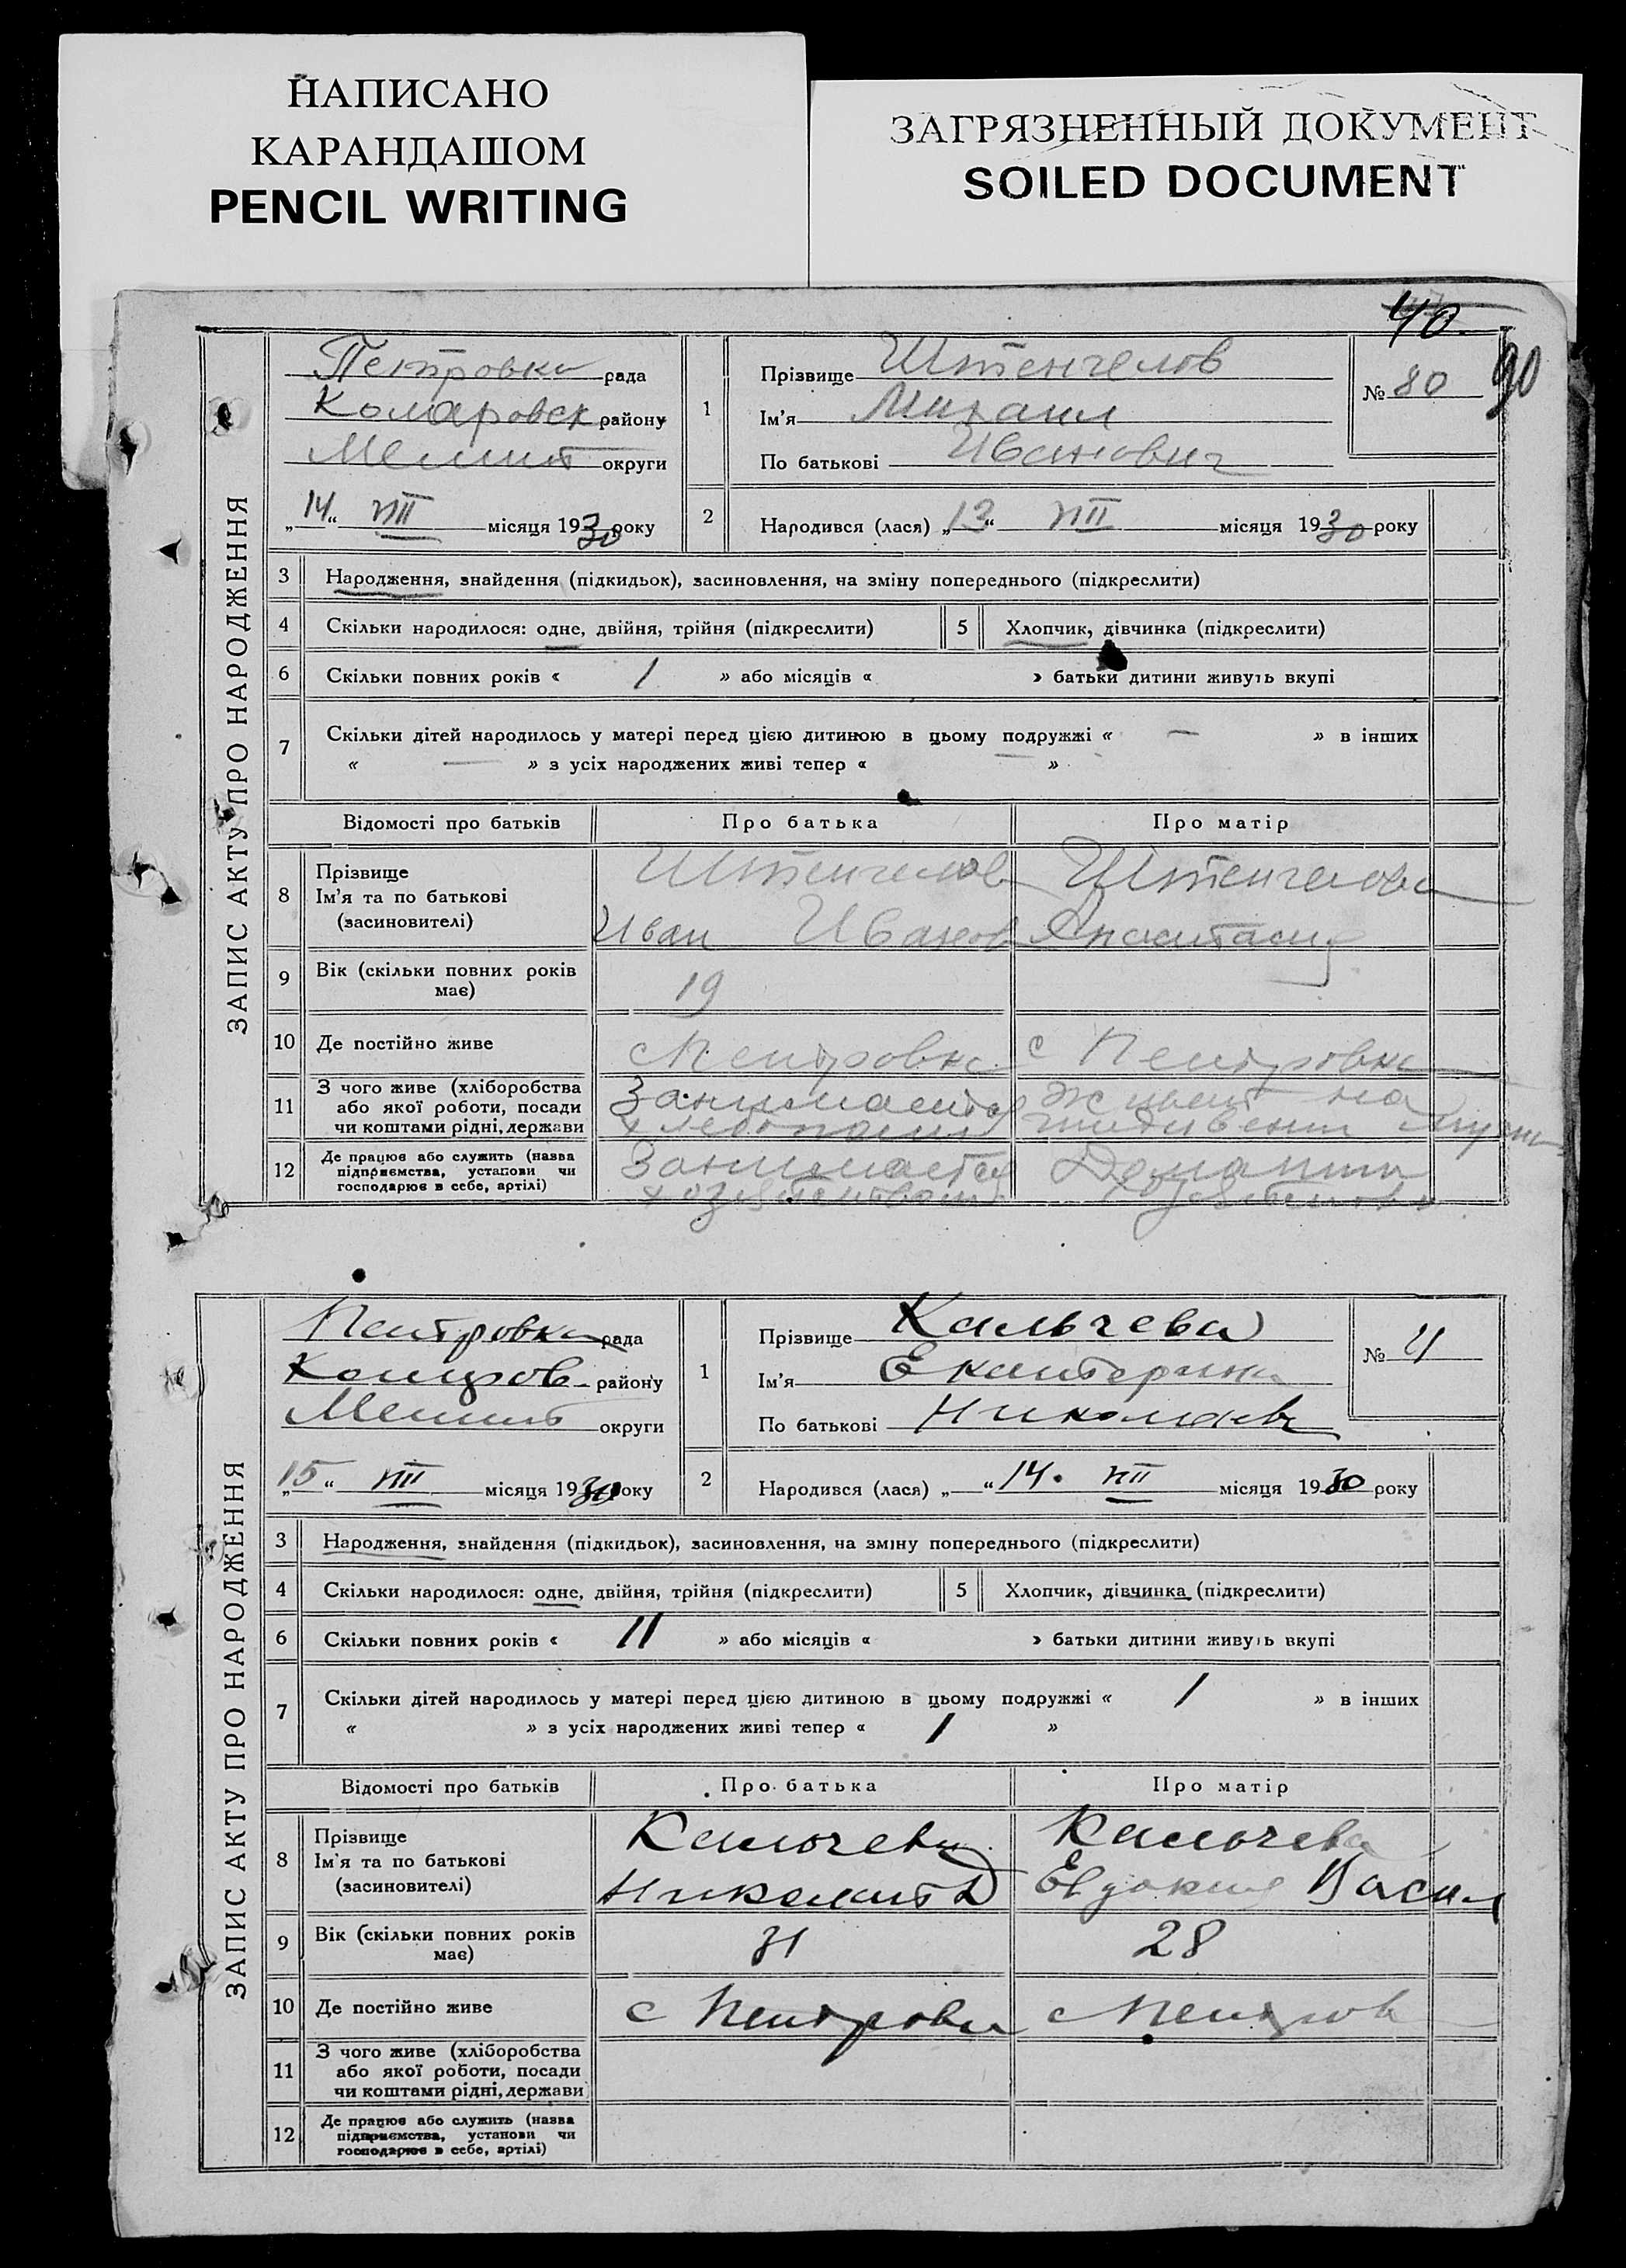 НАПИСАНО
КАРАНДАШОМ
PENCIL WRITING
ЗАГРЯЗНЕННЫЙ ДОКУМЕНТ
SOILED DOCUMENT
40
90
ЗАПИС АКТУ ПРО НАРОДЖЕННЯ
Петровка рада
Комаровск району
Мелит округи
„14“ VIII місяця 1930 року
1
Прізвище Штенгелов
Ім'я Михаил
По батькові Иванович
№ 80
2 Народився (лася) „13“ VIII місяця 1930 року
3 Народження, знайдення (підкидьок), засиновлення, на зміну попереднього (підкреслити)
4 Скільки народилося: одне, двійня, трійня (підкреслити) 5 Хлопчик, дівчинка (підкреслити)
6 Скільки повних років « 1 » або місяців « » батьки дитини живуть вкупі
7 Скільки дітей народилось у матері перед цією дитиною в цьому подружжі « — » в інших
« — » з усіх народжених живі тепер « — »
Відомості про батьків Про батька Про матір
8 Прізвище
Ім'я та по батькові
(засиновителі)
Штенгелов Штенгелова
Иван Иванов Анастасия
9 Вік (скільки повних років
має)
19
10 Де постійно живе с Петровка с Петровка
11 З чого живе (хліборобства
або якої роботи, посади
чи коштами рідні, держави
Занимается живет на
12 Де працює або служить (назва
підприємства, установи чи
господарює в себе, артілі)
Занимается
ЗАПИС АКТУ ПРО НАРОДЖЕННЯ
Петровка рада
району
Мелит округи
„15“ VIII місяця 1930 року
1
Прізвище Кальчева
Ім'я Екатерина
По батькові Николаев
№
2 Народився (лася) „ “ 14. VIII місяця 1930 року
3 Народження, знайдення (підкидьок), засиновлення, на зміну попереднього (підкреслити)
4 Скільки народилося: одне, двійня, трійня (підкреслити) 5 Хлопчик, дівчинка (підкреслити)
6 Скільки повних років « 11 » або місяців « » батьки дитини живуть вкупі
7 Скільки дітей народилось у матері перед цією дитиною в цьому подружжі « 1 » в інших
« » з усіх народжених живі тепер « 1 »
Відомості про батьків Про батька Про матір
8 Прізвище
Ім'я та по батькові
(засиновителі)
Кальчев Кальчева
Николай Д Евдокия Васил
9 Вік (скільки повних років
має)
31 28
10 Де постійно живе с Петровка с Петров
11 З чого живе (хліборобства
або якої роботи, посади
чи коштами рідні, держави
12 Де працює або служить (назва
підприємства, установи чи
господарює в себе, артілі)